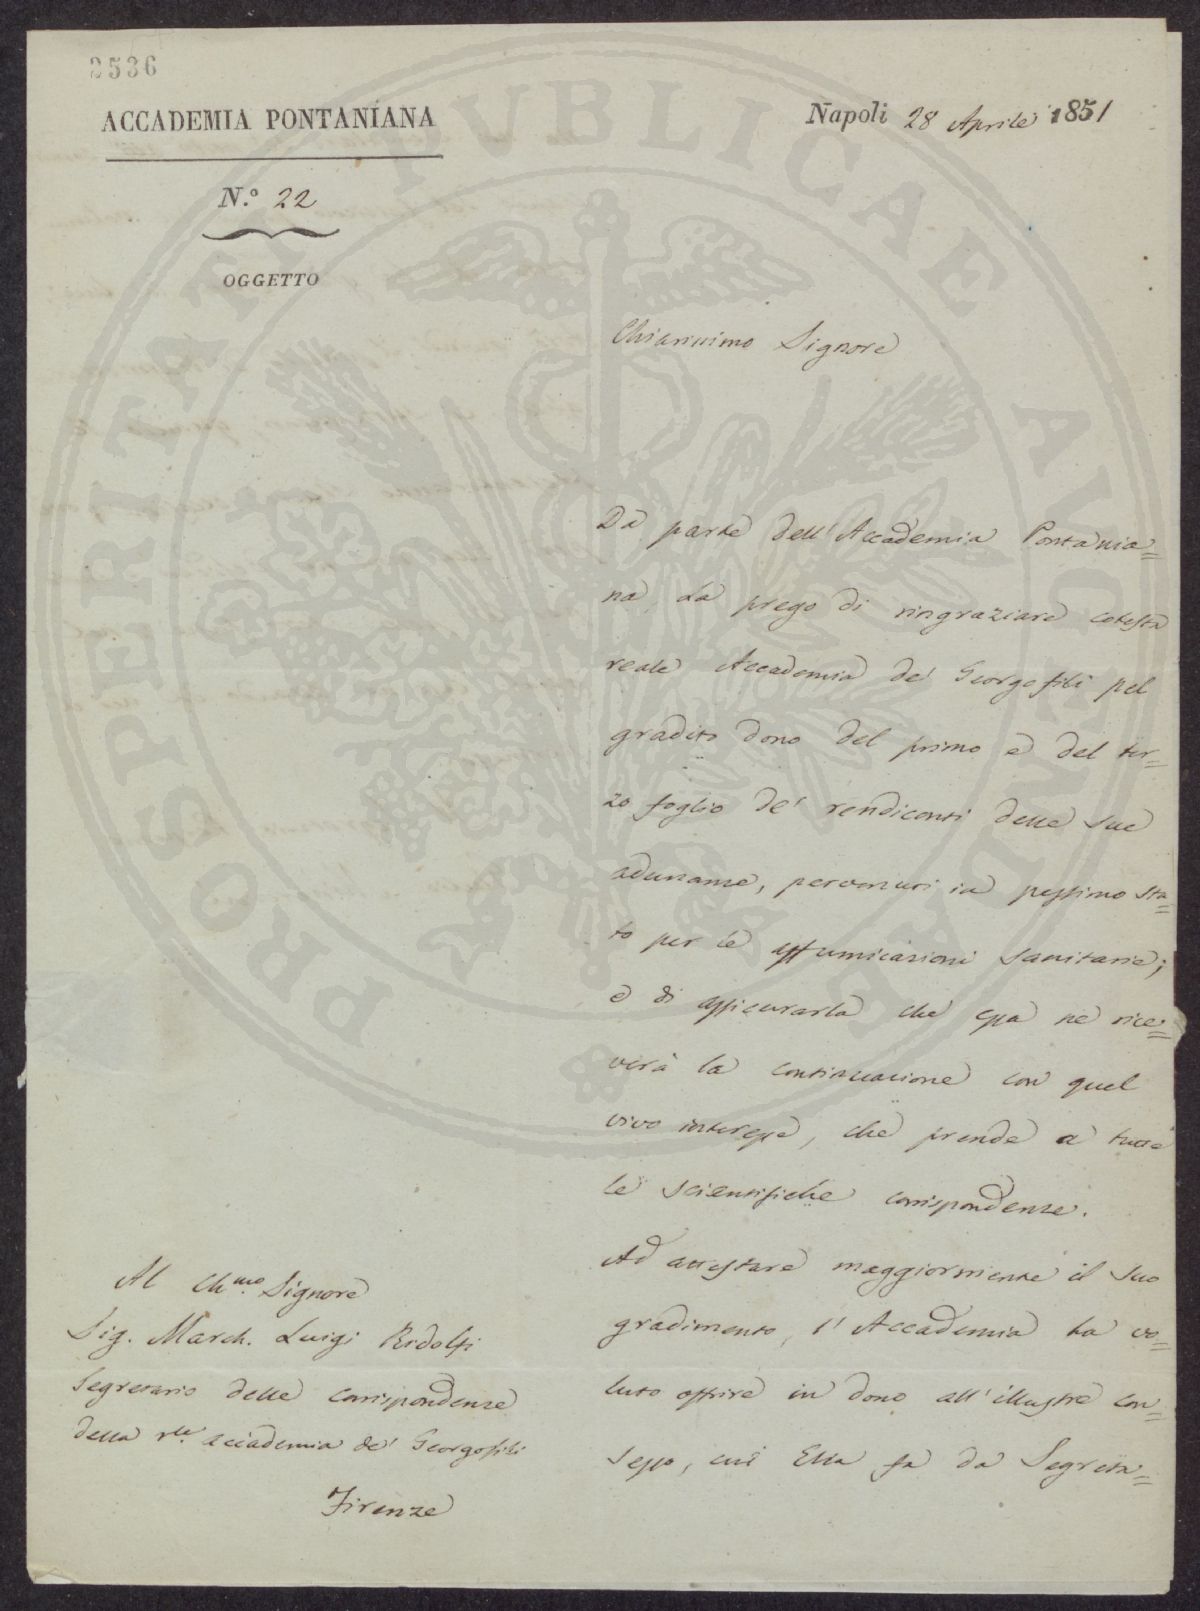 2536
ACCADEMIA PONTANIANA
Napoli 28 Aprile 1851
N.º 22
OGGETTO
Chiarissimo Signore
Da parte dell'Accademia Pontania=
na, La prego di ringraziare cotesta
reale Accademia de' Georgofili pel
gradito dono del primo e del ter=
zo foglio de' rendiconti delle sue
adunanze, pervenuti in pessimo sta=
to per le affumicazioni sanitarie;
e di assicurarla che essa ne rice=
verà la continuazione con quel
vivo interesse, che prende a tutte
le scientifiche corrispondenze.
Ad attestare maggiormente il suo
gradimento, l'Accademia ha vo=
luto offrire in dono all'illustre con=
sesso, cui Ella fa da Segreta=
Al Ch.mo Signore
Sig. March. Luigi Ridolfi
Segretario delle corrispondenze
della r.le accademia de' Georgofili
Firenze
PROSPERITATI PVBLICAE AVGENDAE